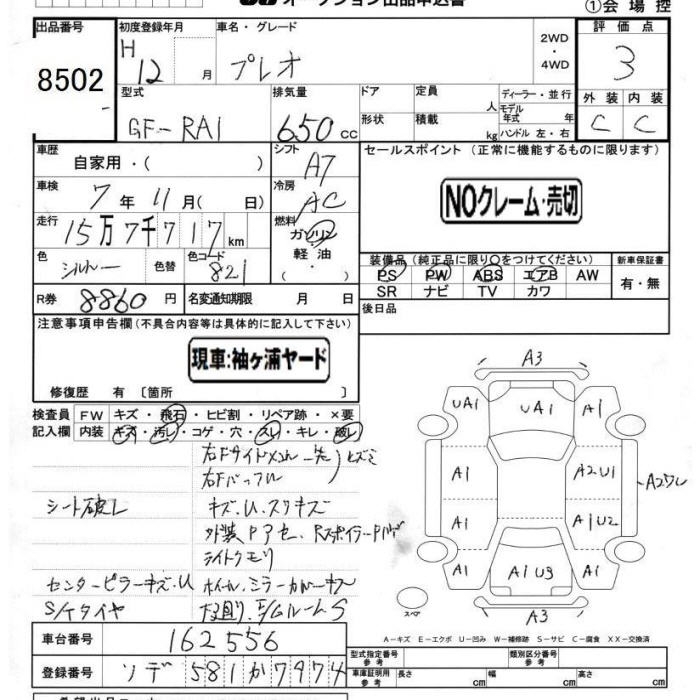 オークション出品申込書
①会場控
出品番号
8502
初度登録年月
H 12 月
車名・グレード
プレオ
2WD
・
4WD
評価点
3
外装 内装
C C
型式
GF-RA1
排気量
650 cc
ドア
形状
定員 人
積載 kg
ディーラー・並行
モデル
年式 年
ハンドル 左・右
車歴
自家用・( )
シフト
A7
車検
7 年 11 月 ( 日)
冷房
AC
走行
15万7千717 km
燃料
ガソリン
軽油
( )
色
シルバー
色替
色コード
821
R券
8860 円
名変通知期限 月 日
セールスポイント (正常に機能するものに限ります)
NOクレーム・売切
装備品 (純正品に限り○をつけてください)
PS PW ABS エアB AW
SR ナビ TV カワ
新車保証書
有・無
後日品
注意事項申告欄(不具合内容等は具体的に記入して下さい)
現車:袖ヶ浦ヤード
修復歴 有 〔箇所 〕
検査員
記入欄
FW キズ・飛石・ヒビ割・リペア跡・×要
内装 キズ・汚レ・コゲ・穴・スレ・キレ・破レ
右Fサイドメンバー先
右Fバッフル
シート破レ
キズ.U.スリキズ
外装Pアセ.
ライトクモリ
センターピラーキズ.U
S/Tタイヤ
A3
UA1 UA1 A1
A1 A2U1
A1 A1U2
A1 A1U3 A1
A3
スペア
A-キズ E-エクボ U-凹み W-補修跡 S-サビ C-腐食 XX-交換済
車台番号
162556
登録番号
ソデ 581 か 7974
型式指定番号
参考
類別区分番号
参考
車庫証明用
参考
長さ cm 幅 cm 高さ cm